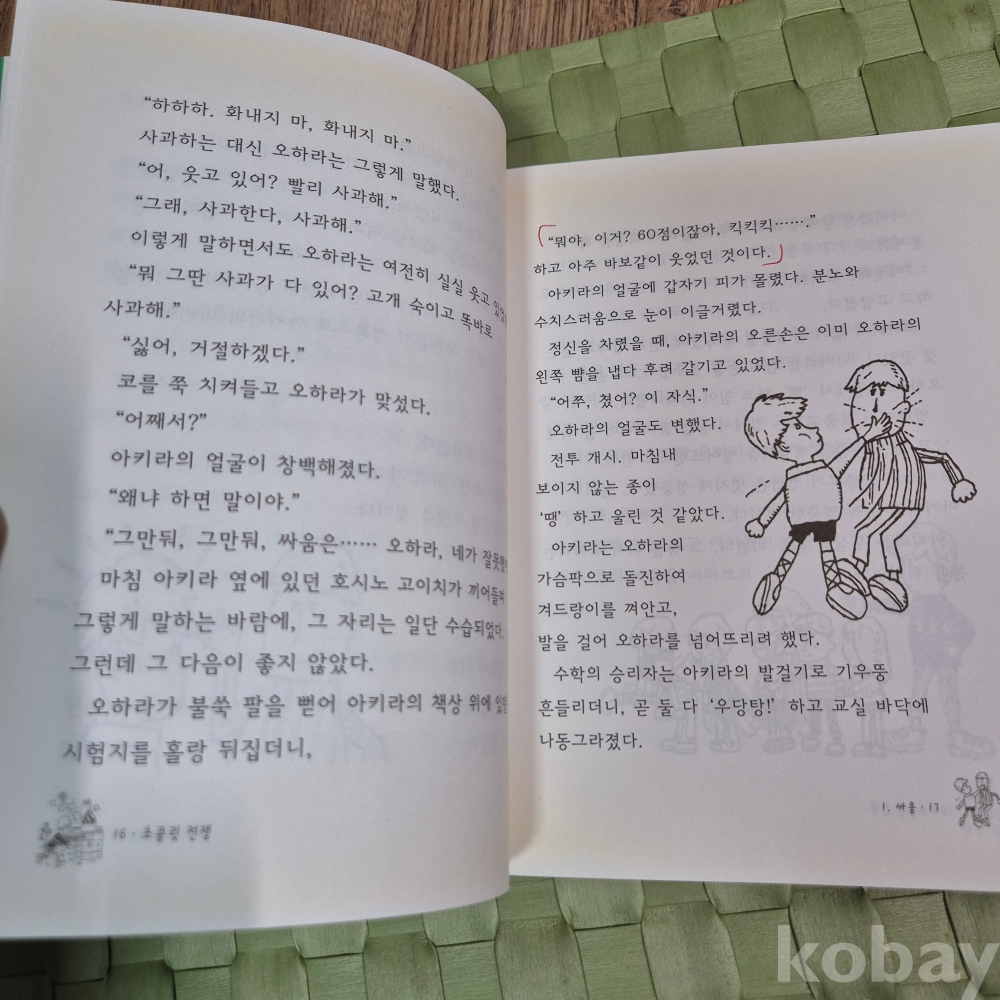 “하하하. 화내지 마, 화내지 마.”
사과하는 대신 오하라는 그렇게 말했다.
“어, 웃고 있어? 빨리 사과해.”
“그래, 사과한다, 사과해.”
이렇게 말하면서도 오하라는 여전히 실실 웃고
“뭐 그딴 사과가 다 있어? 고개 숙이고 똑바로
사과해.”
“싫어, 거절하겠다.”
코를 쭉 치켜들고 오하라가 맞섰다.
“어째서?”
아키라의 얼굴이 창백해졌다.
“왜냐 하면 말이야.”
“그만둬, 그만둬, 싸움은…… 오하라, 네가
마침 아키라 옆에 있던 호시노 고이치가 끼어들며
그렇게 말하는 바람에, 그 자리는 일단 수습되었다.
그런데 그 다음이 좋지 않았다.
오하라가 불쑥 팔을 뻗어 아키라의 책상 위에
시험지를 홀랑 뒤집더니,
16 · 초콜릿 전쟁
“뭐야, 이거? 60점이잖아, 킥킥킥…….”
하고 아주 바보같이 웃었던 것이다.
아키라의 얼굴에 갑자기 피가 몰렸다. 분노와
수치스러움으로 눈이 이글거렸다.
정신을 차렸을 때, 아키라의 오른손은 이미 오하라의
왼쪽 뺨을 냅다 후려 갈기고 있었다.
“어쭈, 쳤어? 이 자식.”
오하라의 얼굴도 변했다.
전투 개시. 마침내
보이지 않는 종이
‘땡’ 하고 울린 것 같았다.
아키라는 오하라의
가슴팍으로 돌진하여
겨드랑이를 껴안고,
발을 걸어 오하라를 넘어뜨리려 했다.
수학의 승리자는 아키라의 발걸기로 기우뚱
흔들리더니, 곧 둘 다 ‘우당탕!’ 하고 교실 바닥에
나동그라졌다.
1. 싸움 · 17
kobay